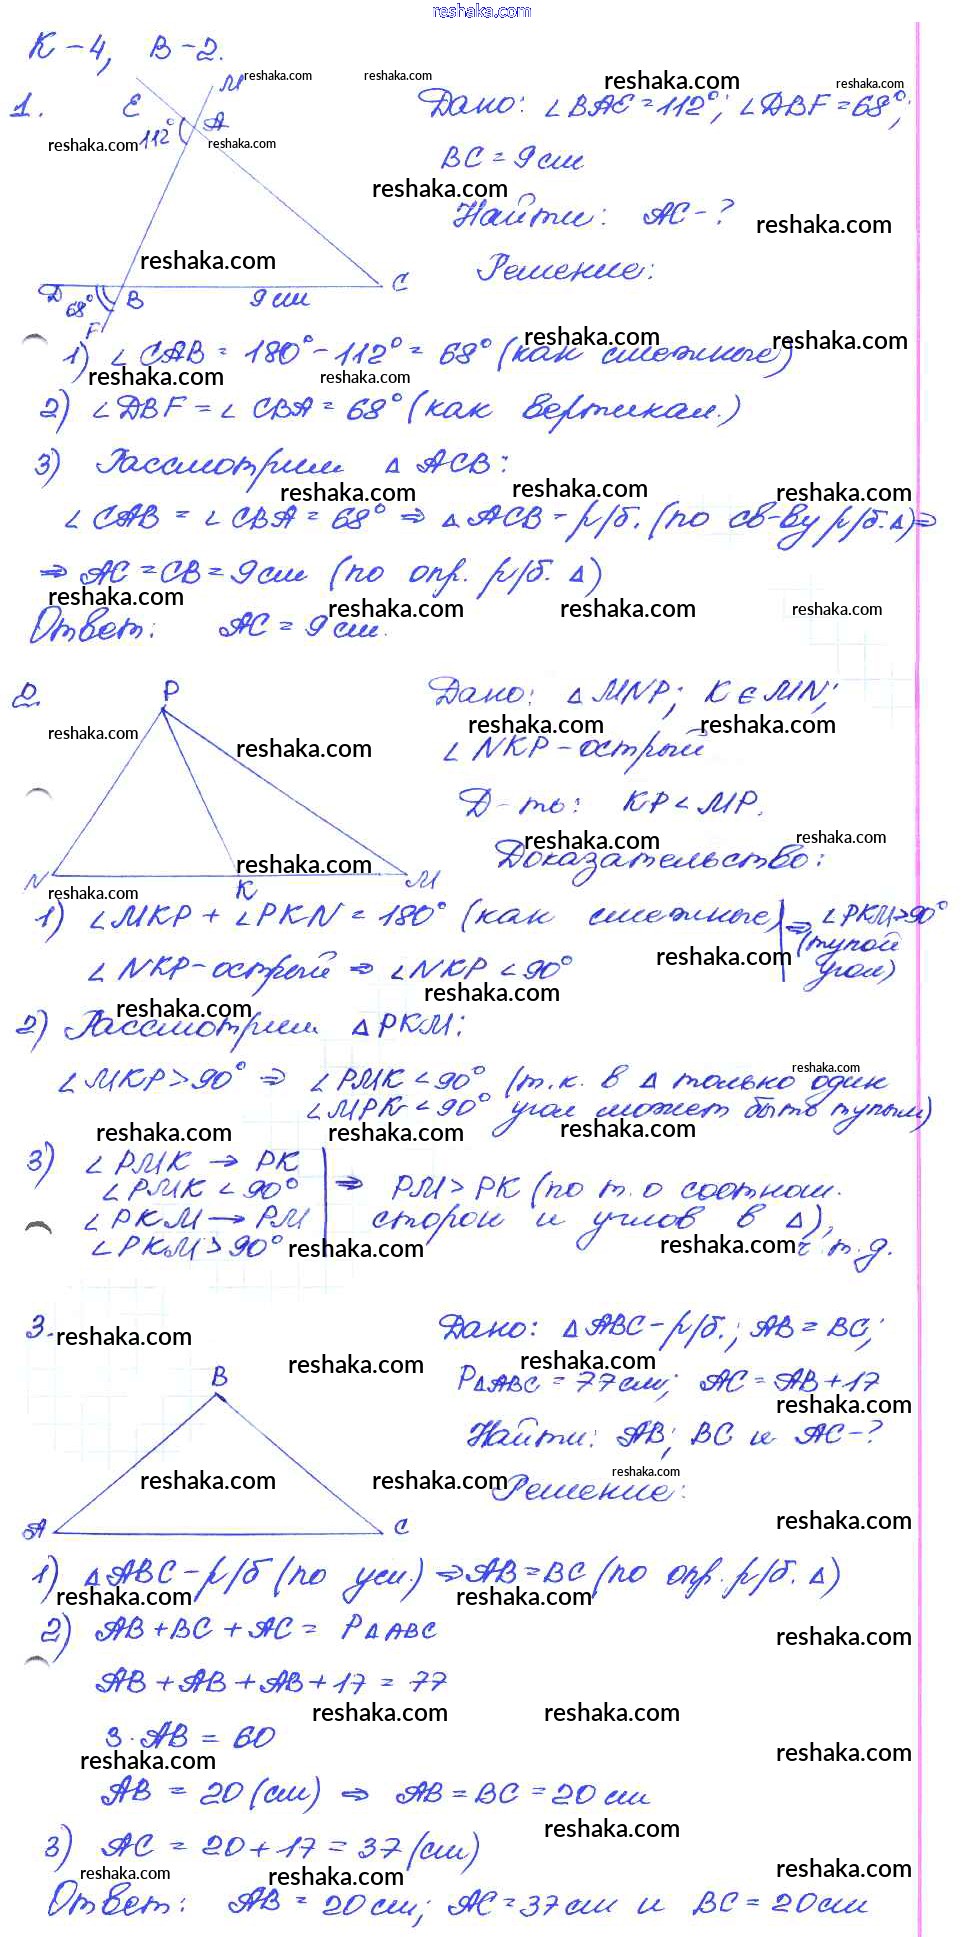 reshaka.com
К-4, В-2.
1.
E
M
A
112°
D
68°
B
9 см
C
F
Дано: ∠BAE = 112°; ∠DBF = 68°;
BC = 9 см
Найти: AC - ?
Решение:
1) ∠CAB = 180° - 112° = 68° (как смежные)
2) ∠DBF = ∠CBA = 68° (как вертикал.)
3) Рассмотрим △ ACB:
∠CAB = ∠CBA = 68° ⇒ △ ACB - р/б. (по св-ву р/б. △) ⇒
⇒ AC = CB = 9 см (по опр. р/б. △)
Ответ: AC = 9 см.
2.
P
N
K
M
Дано: △ MNP; K ∈ MN;
∠ NKP - острый
Д-ть: KP < MP.
Доказательство:
1) ∠MKP + ∠PKN = 180° (как смежные) ⇒ ∠PKM > 90°
∠ NKP - острый ⇒ ∠NKP < 90° (тупой угол)
2) Рассмотрим △ PKM:
∠MKP > 90° ⇒ ∠PMK < 90° (т.к. в △ только один
∠MPK < 90° угол может быть тупым)
3) ∠PMK → PK
∠PMK < 90° ⇒ PM > PK (по т. о соотнош.
∠PKM → PM сторон и углов в △),
∠PKM > 90° ч.т.д.
3.
B
A
C
Дано: △ABC - р/б.; AB = BC;
P△ABC = 77 см; AC = AB + 17
Найти: AB; BC и AC - ?
Решение:
1) △ABC - р/б (по усл.) ⇒ AB = BC (по опр. р/б. △)
2) AB + BC + AC = P△ABC
AB + AB + AB + 17 = 77
3 · AB = 60
AB = 20 (см) ⇒ AB = BC = 20 см
3) AC = 20 + 17 = 37 (см)
Ответ: AB = 20 см; AC = 37 см и BC = 20 см